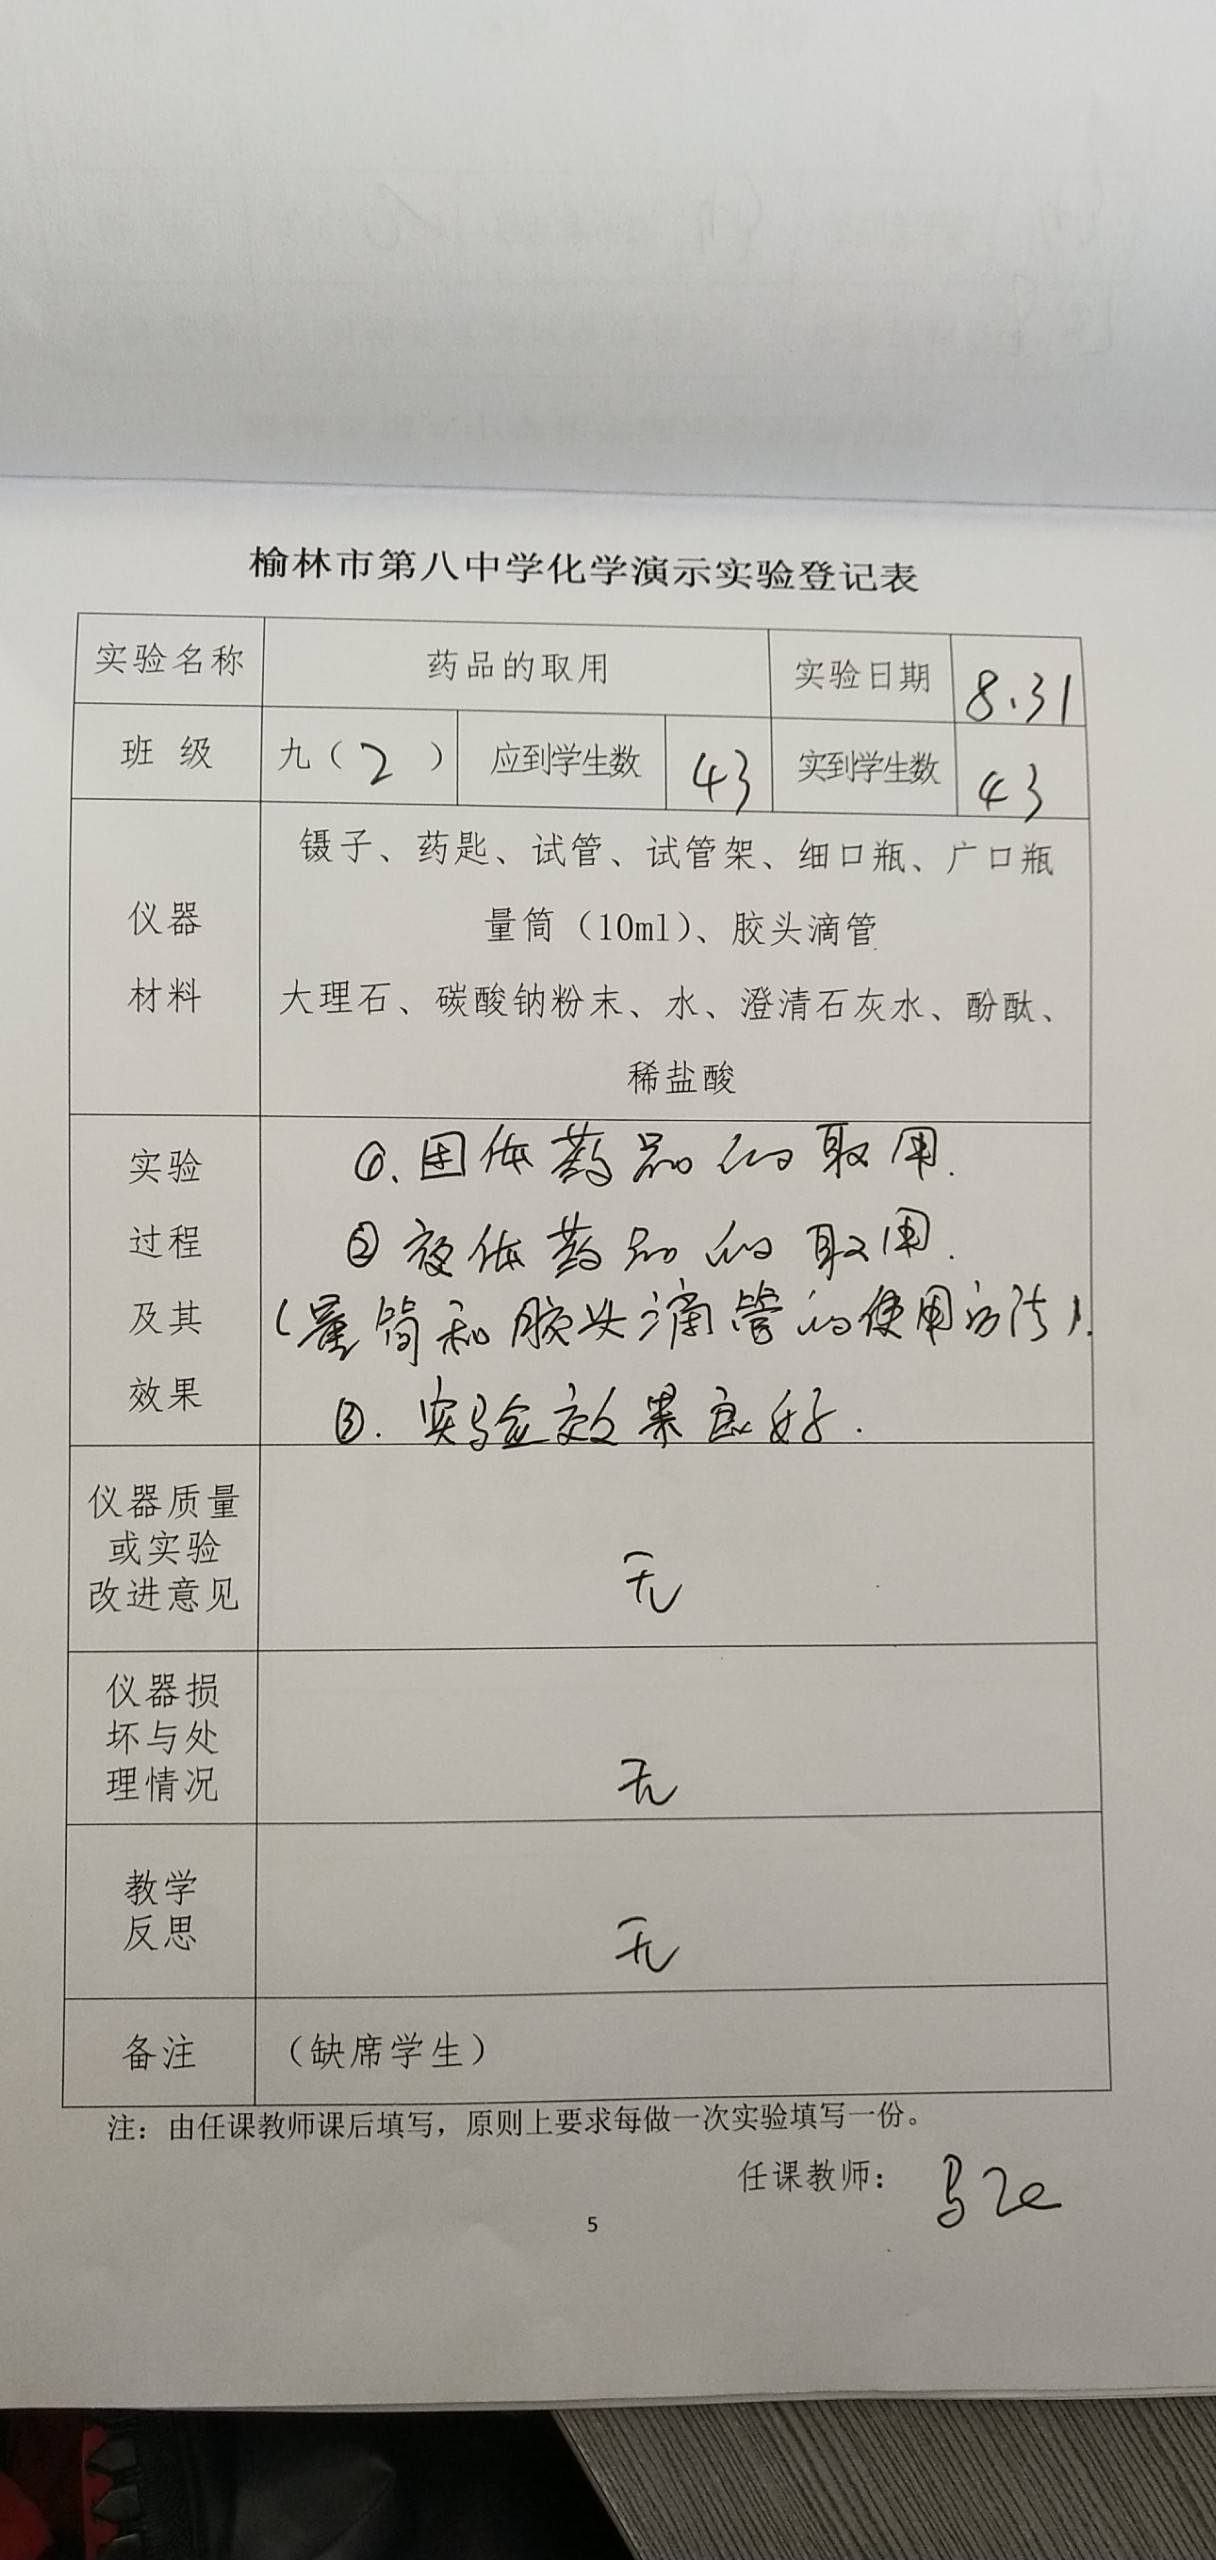 榆林市第八中学化学演示实验登记表
实验名称 药品的取用 实验日期 8.31
班 级 九（2） 应到学生数 43 实到学生数 43
仪器
材料
镊子、药匙、试管、试管架、细口瓶、广口瓶
量筒（10ml）、胶头滴管
大理石、碳酸钠粉末、水、澄清石灰水、酚酞、
稀盐酸
实验
过程
及其
效果
①.固体药品的取用.
②液体药品的取用.
（量筒和胶头滴管的使用方法）.
③.实验效果良好.
仪器质量
或实验
改进意见
无
仪器损
坏与处
理情况
无
教学
反思
无
备注 （缺席学生）
注：由任课教师课后填写，原则上要求每做一次实验填写一份。
任课教师：
5